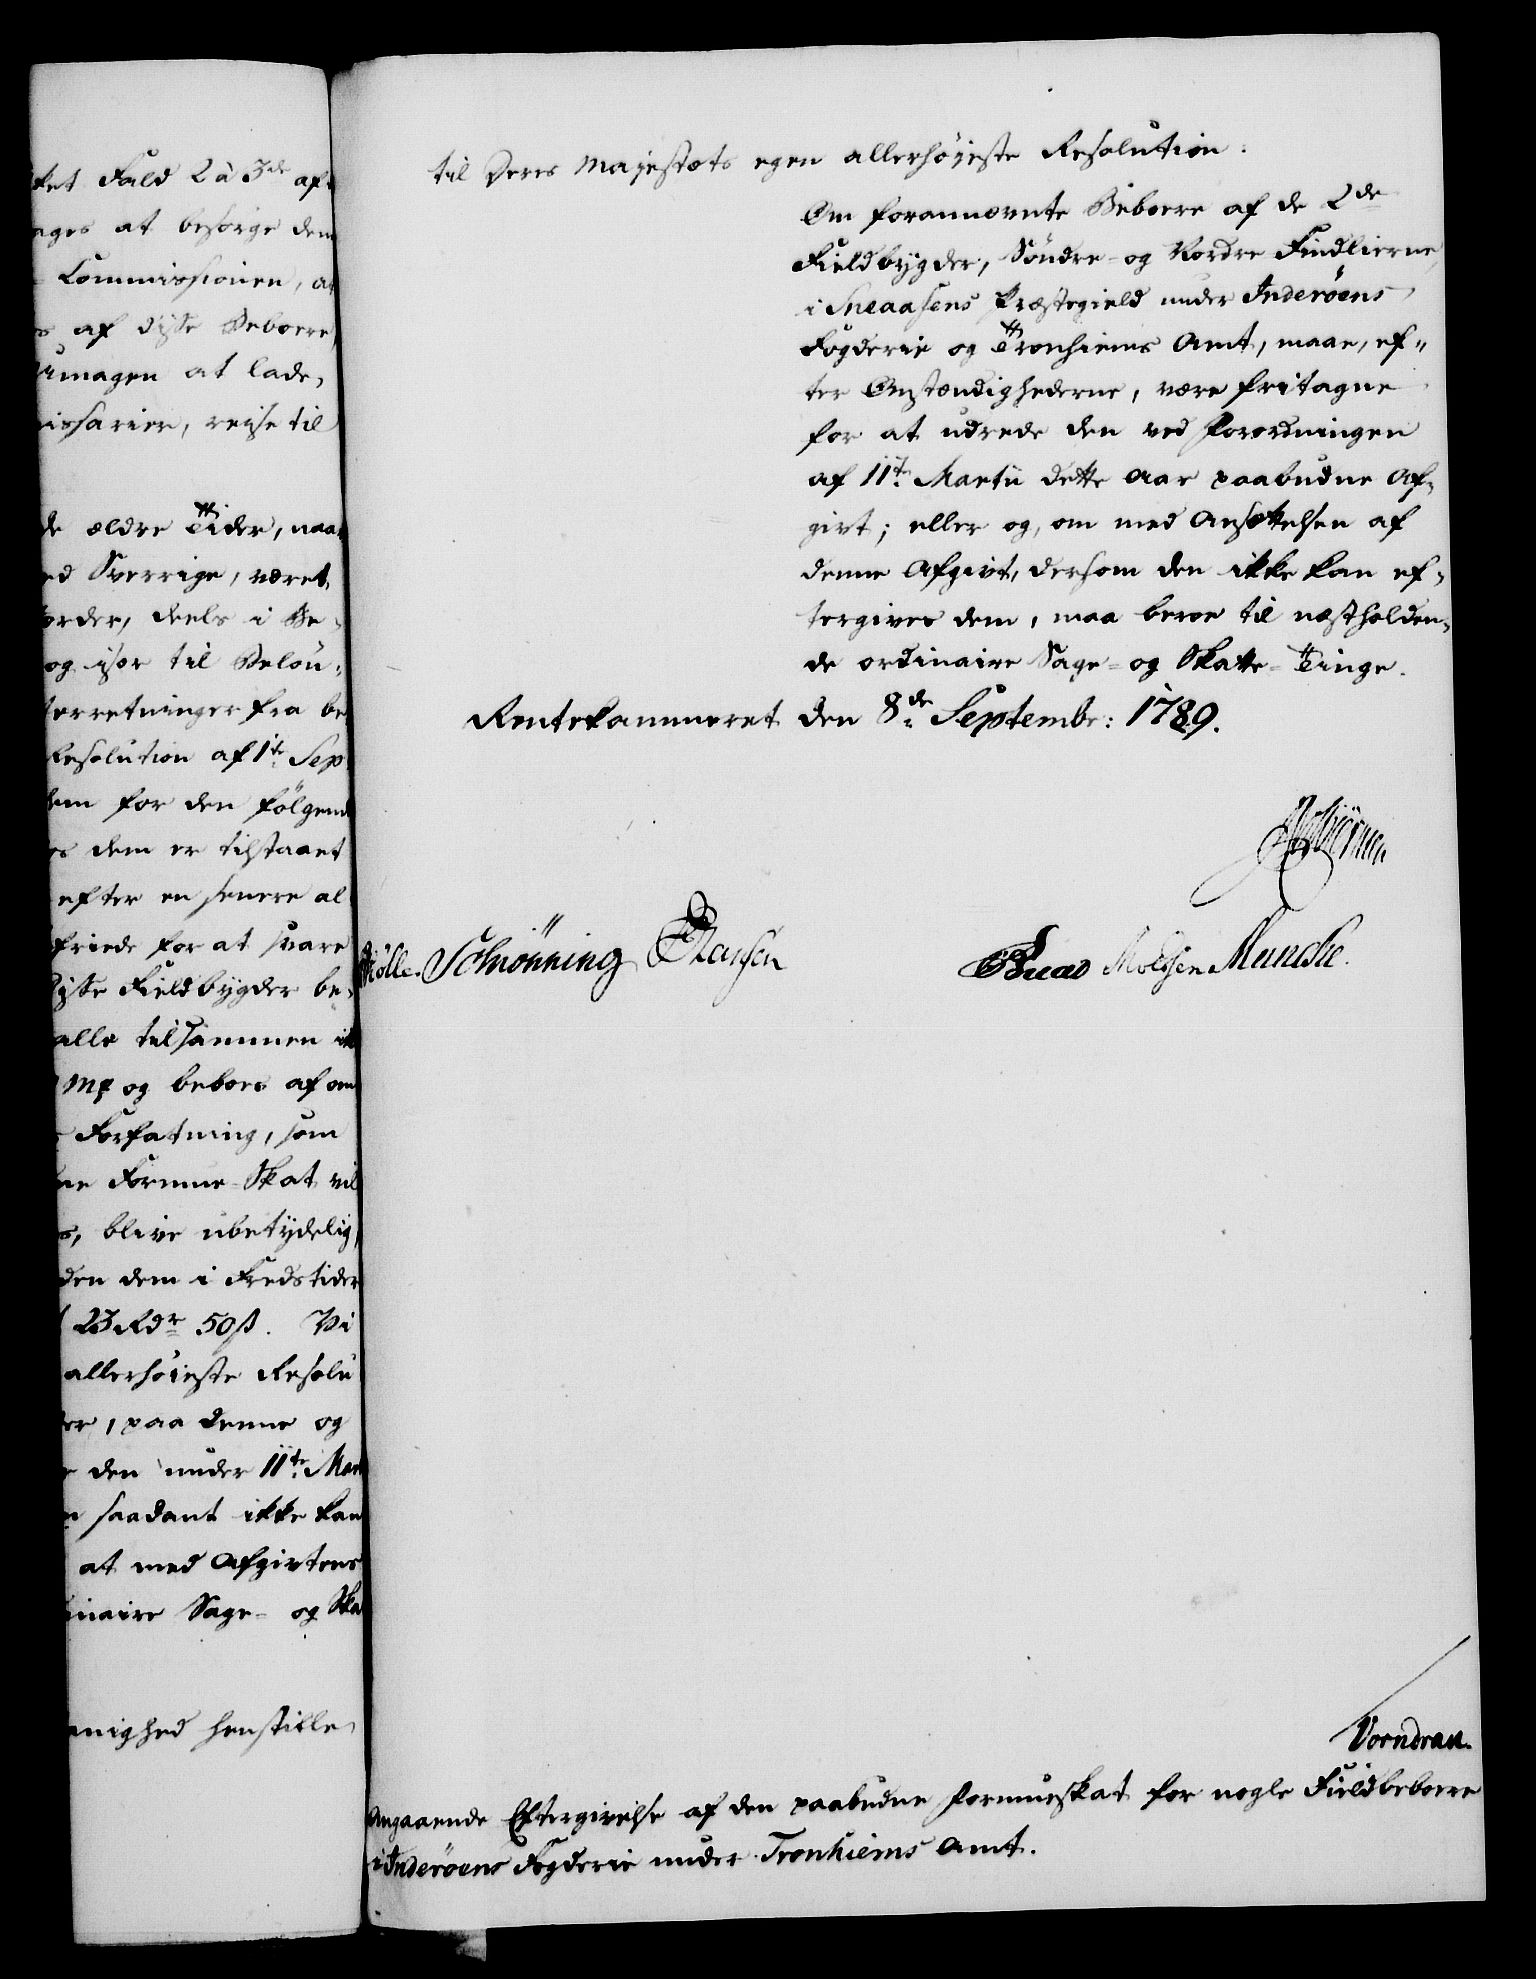 ket Fald 2 à 3de af-
ages at besørge dem
Commissionen, at
af disse Beboere
Umagen at lade,
missarier, reise til
de ældre Tider, naar
ed Sverrige, været
order, deels i Be-
og især til Beløn-
terretninger fra be
Resolution af 1te Sep
dem for den følgend
es dem er tilstaaet
efter en senere al
friede for at svare
Disse Fieldbygder be-
alle tilsammen ik
og beboes af om
Forfatning, som
ne Formue-Skat vil
s, blive ubetydelig,
den dem i Fredstider
23 Rdr 50 ß. Vi
allerhøieste Resolu
er, paa denne og
den under 11te Mar
saadant ikke kan
at med Afgivtens
inaire Sage- og Ska
anighed henstille
til Deres Majestæts egen allerhøjeste Resolution:
Om forannævnte Beboere af de 2de
Fieldbygder, Søndre- og Nordre Findlierne,
i Sneaasens Præstegield under Inderøens
Fogderie og Tronhiems Amt, maae, ef-
ter Omstændighederne, være fritagne
for at udrede den ved Forordningen
af 11te Martii dette Aar paabudne Af-
givt; eller og, om med Ansættelsen af
denne Afgivt, dersom den ikke kan ef-
tergives dem, maa beroe til næstholden-
de ordinaire Sage- og Skatte-Tinge.
Rentekammeret den 8de Septembr: 1789.
Schønning Hansen Moldsen Munche.
Vorndran.
Angaaende Eftergivelse af den paabudne Formueskat for nogle Fieldbeboere
i Inderøens Fogderie under Tronhiems Amt.